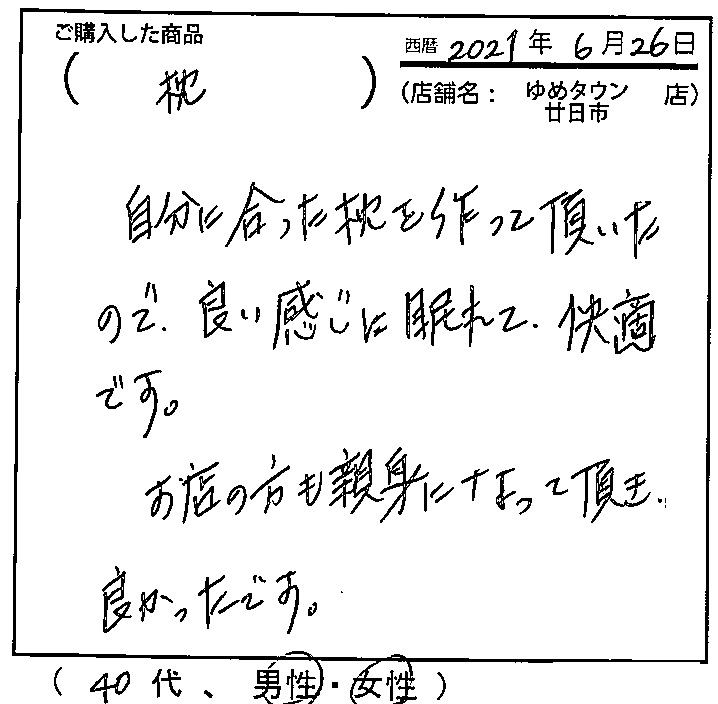 ご購入した商品
( 枕 )
西暦 2021年 6月26日
(店舗名: ゆめタウン 廿日市 店)
自分に合った枕を作って頂いた
ので、良い感じに眠れて、快適
です。
お店の方も親身になって頂き、
良かったです。
( 40代、男性・女性 )